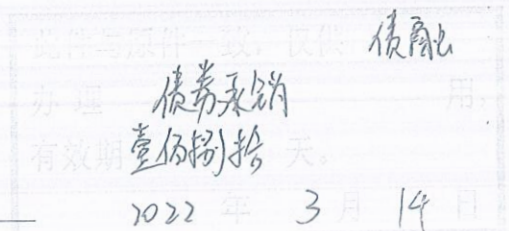 此件与原件一致，仅供 债融
办理 债券承销 用，
有效期 壹佰捌拾 天。
2022 年 3 月 14 日